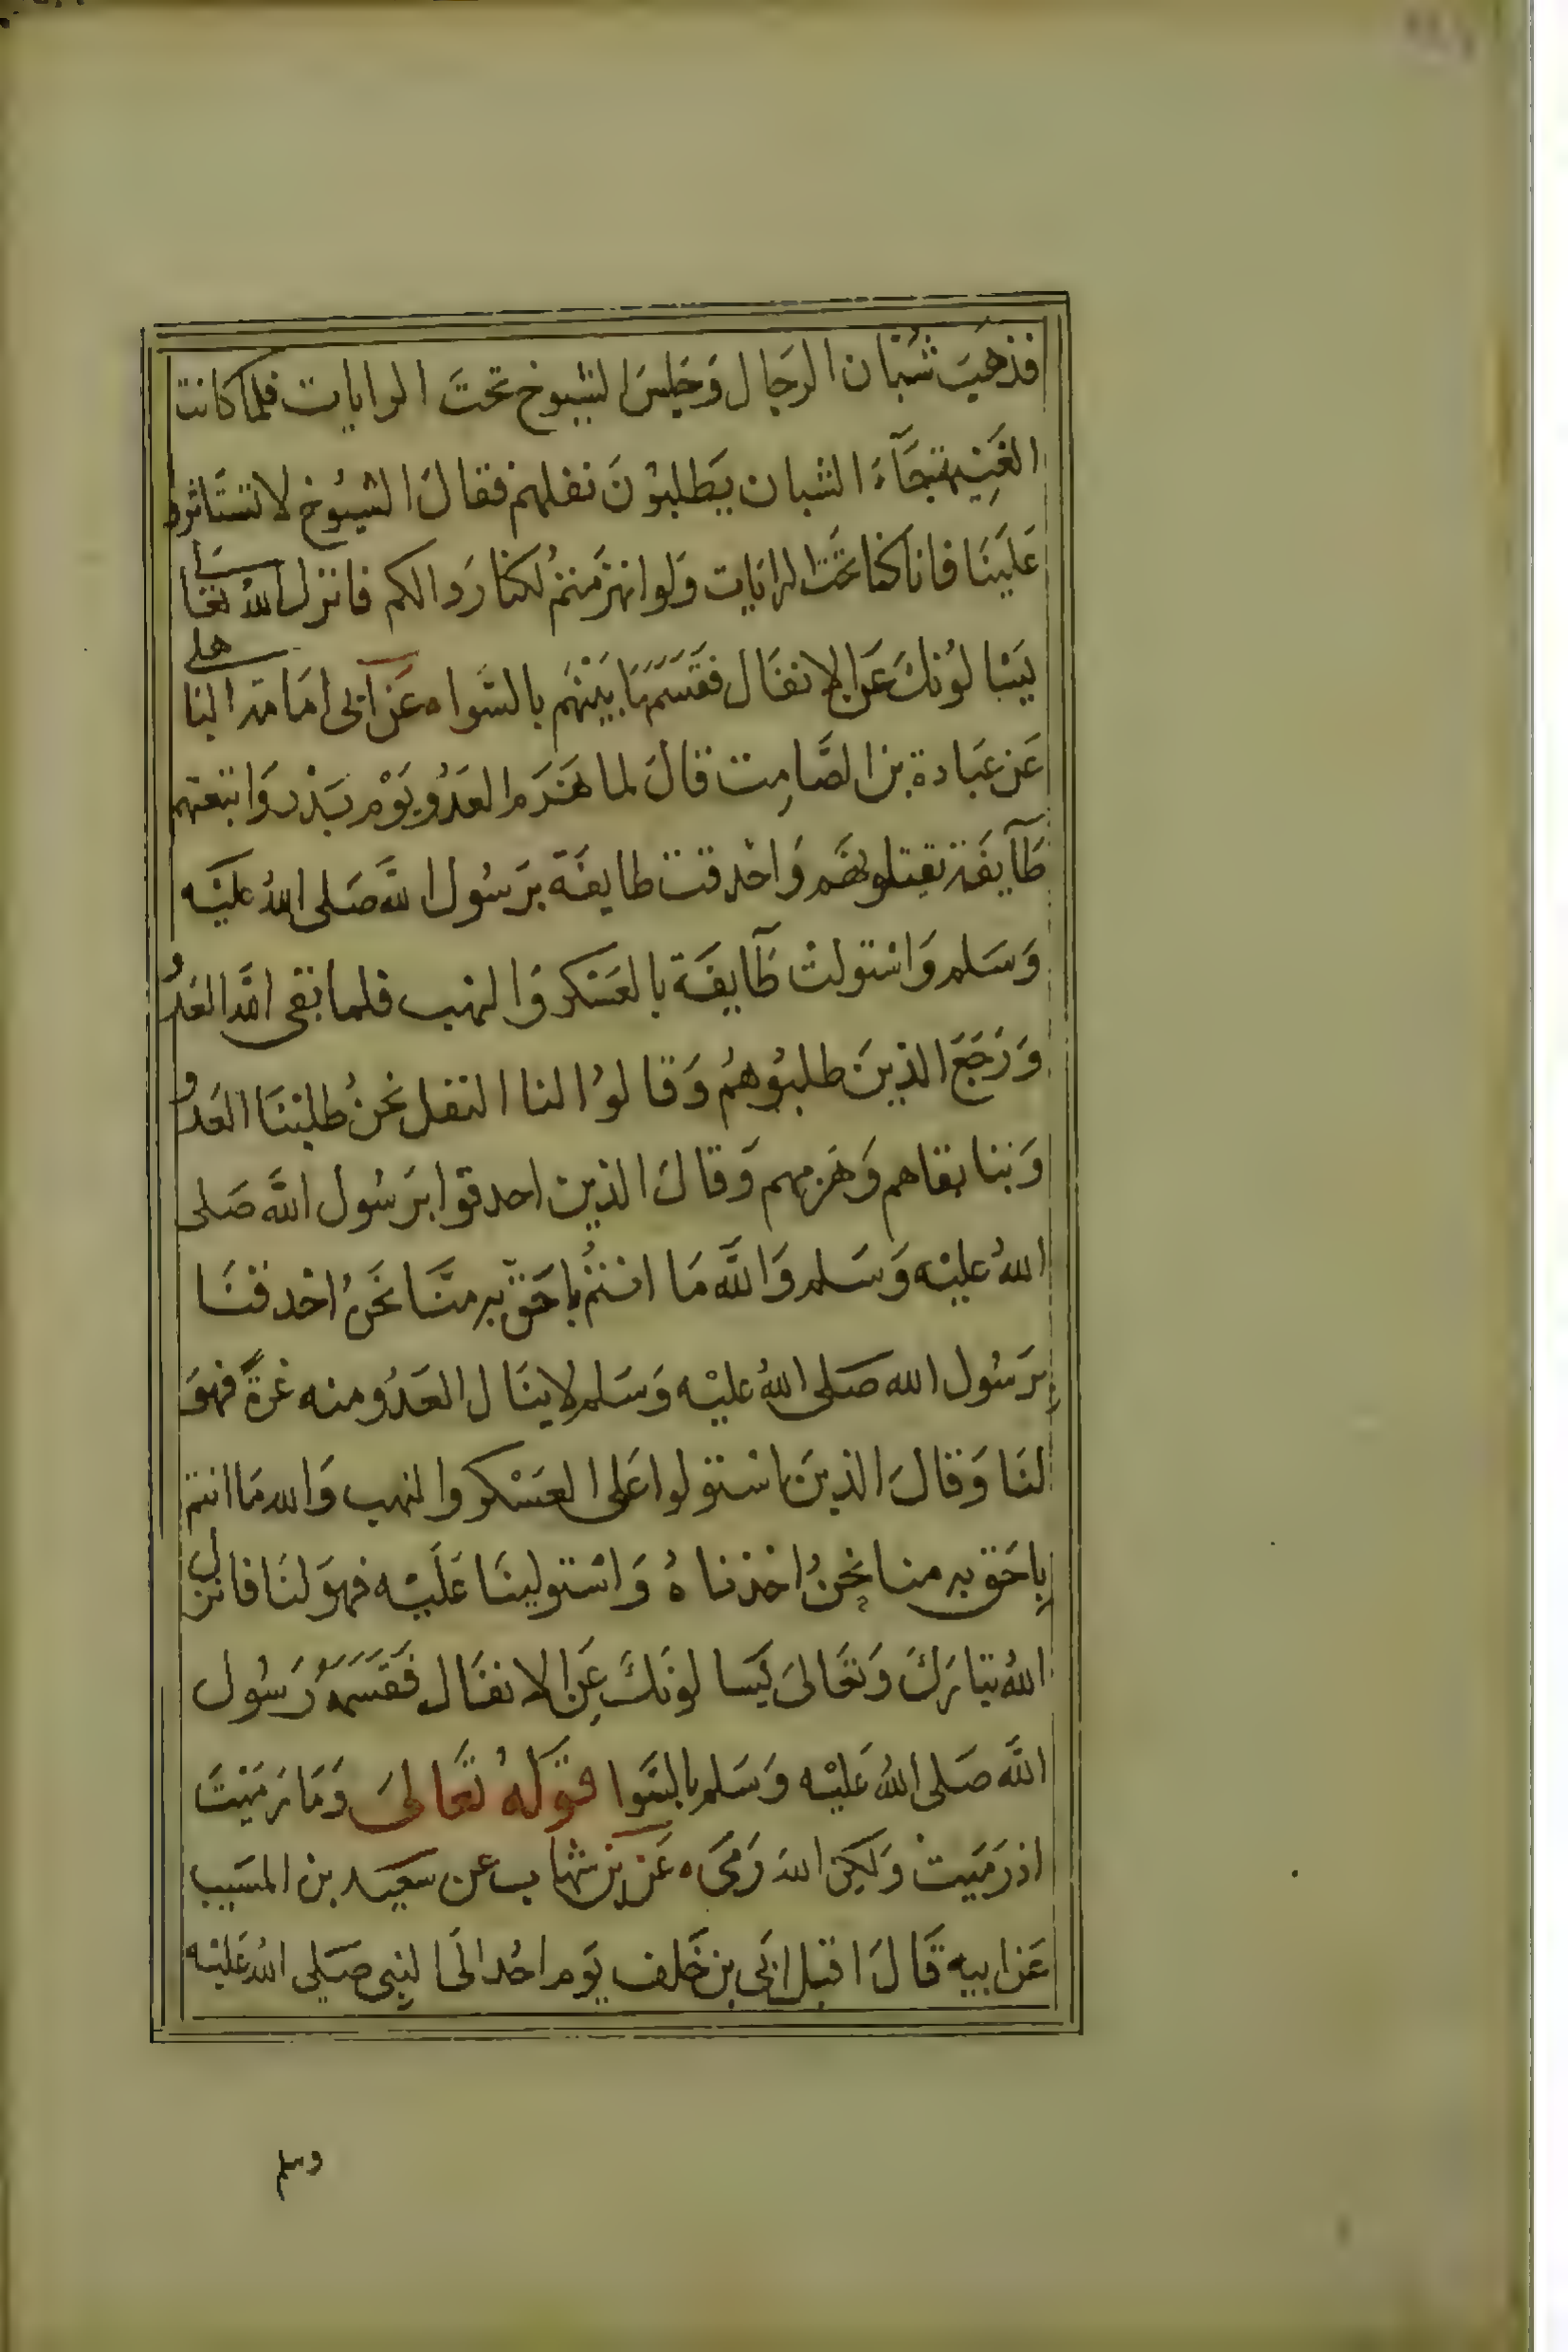 فذهَبَ شُبَان الرجَال وَجَلسَ الشيوخ تحتَ الرايات فلما كانت
الغَنِيمة جَآءَ الشبان يَطلبوُنَ نفلهم فقالَ الشيُوخ لا تستَاثروا
عَليَنَا فانا كنا تحَت الرايات وَلو انهزَمتمُ لكنا رَدا لكم فانزل اللهُ تعَالى
يَسْالوُنكَ عَن الانفَال فقسَمهَا بَيْنَهُم بالسَّوا ٥ عَن ابى امَامَة الباهلي
عَن عبَادة بن الصَّامِت قالَ لما هَزَم العَدُو يَوْم بَدْر وَاتبعتهم
طَآيفَة يقتلونهَم وَاحْدقت طايفَة برَسُول الله صَلى اللهُ عليَه
وَسَلم وَاستولتْ طَآيفَة بالعَسْكر وَالنهب فلما نقى اللهَ العَدُو
وَرَجَعَ الذينَ طلبُوهمُ وَقالوُا لنا النفل نحنُ طلبنَا العَدُو
وَبنا نفاهم وَهَزمهم وَقالَ الذين احدقوا برَسُول اللَّه صَلى
اللهُ عليْه وَسَلم وَاللَّه مَا انتمُ باحَقّ به منَّا نحَنُ احْدقنَا
برَسُول الله صَلى اللهُ عليْه وَسَلم لا ينَال العَدُو منه غرةً فهوَ
لنَا وَقالَ الذينَ استولوا عَلى العسْكر والنهب وَالله مَا انتم
بِاحَق به منا نحنُ اخذناهُ وَاسْتولينَا عَلَيْه فهوَ لنَا فانزل
اللهُ تبَارَكَ وَتعَالىَ يَسَالونَكَ عَنِ الانفَال فَقَسَمَهُ رَسُول
اللَّه صَلى اللهُ عَليْه وَسَلم بالسَّوا قوَلهُ تعَالىَ وَمَا رَميْتَ
اذ رَمَيتْ وَلكِن اللهَ رَمىَ ٥ عَن بن شهَاب عن سَعيَد بن المسَيب
عَن ابيه قَالَ اقبل ابَى بن خَلف يَوم احُد الَى النبِى صَلي اللهُ عَليْه
وسلم